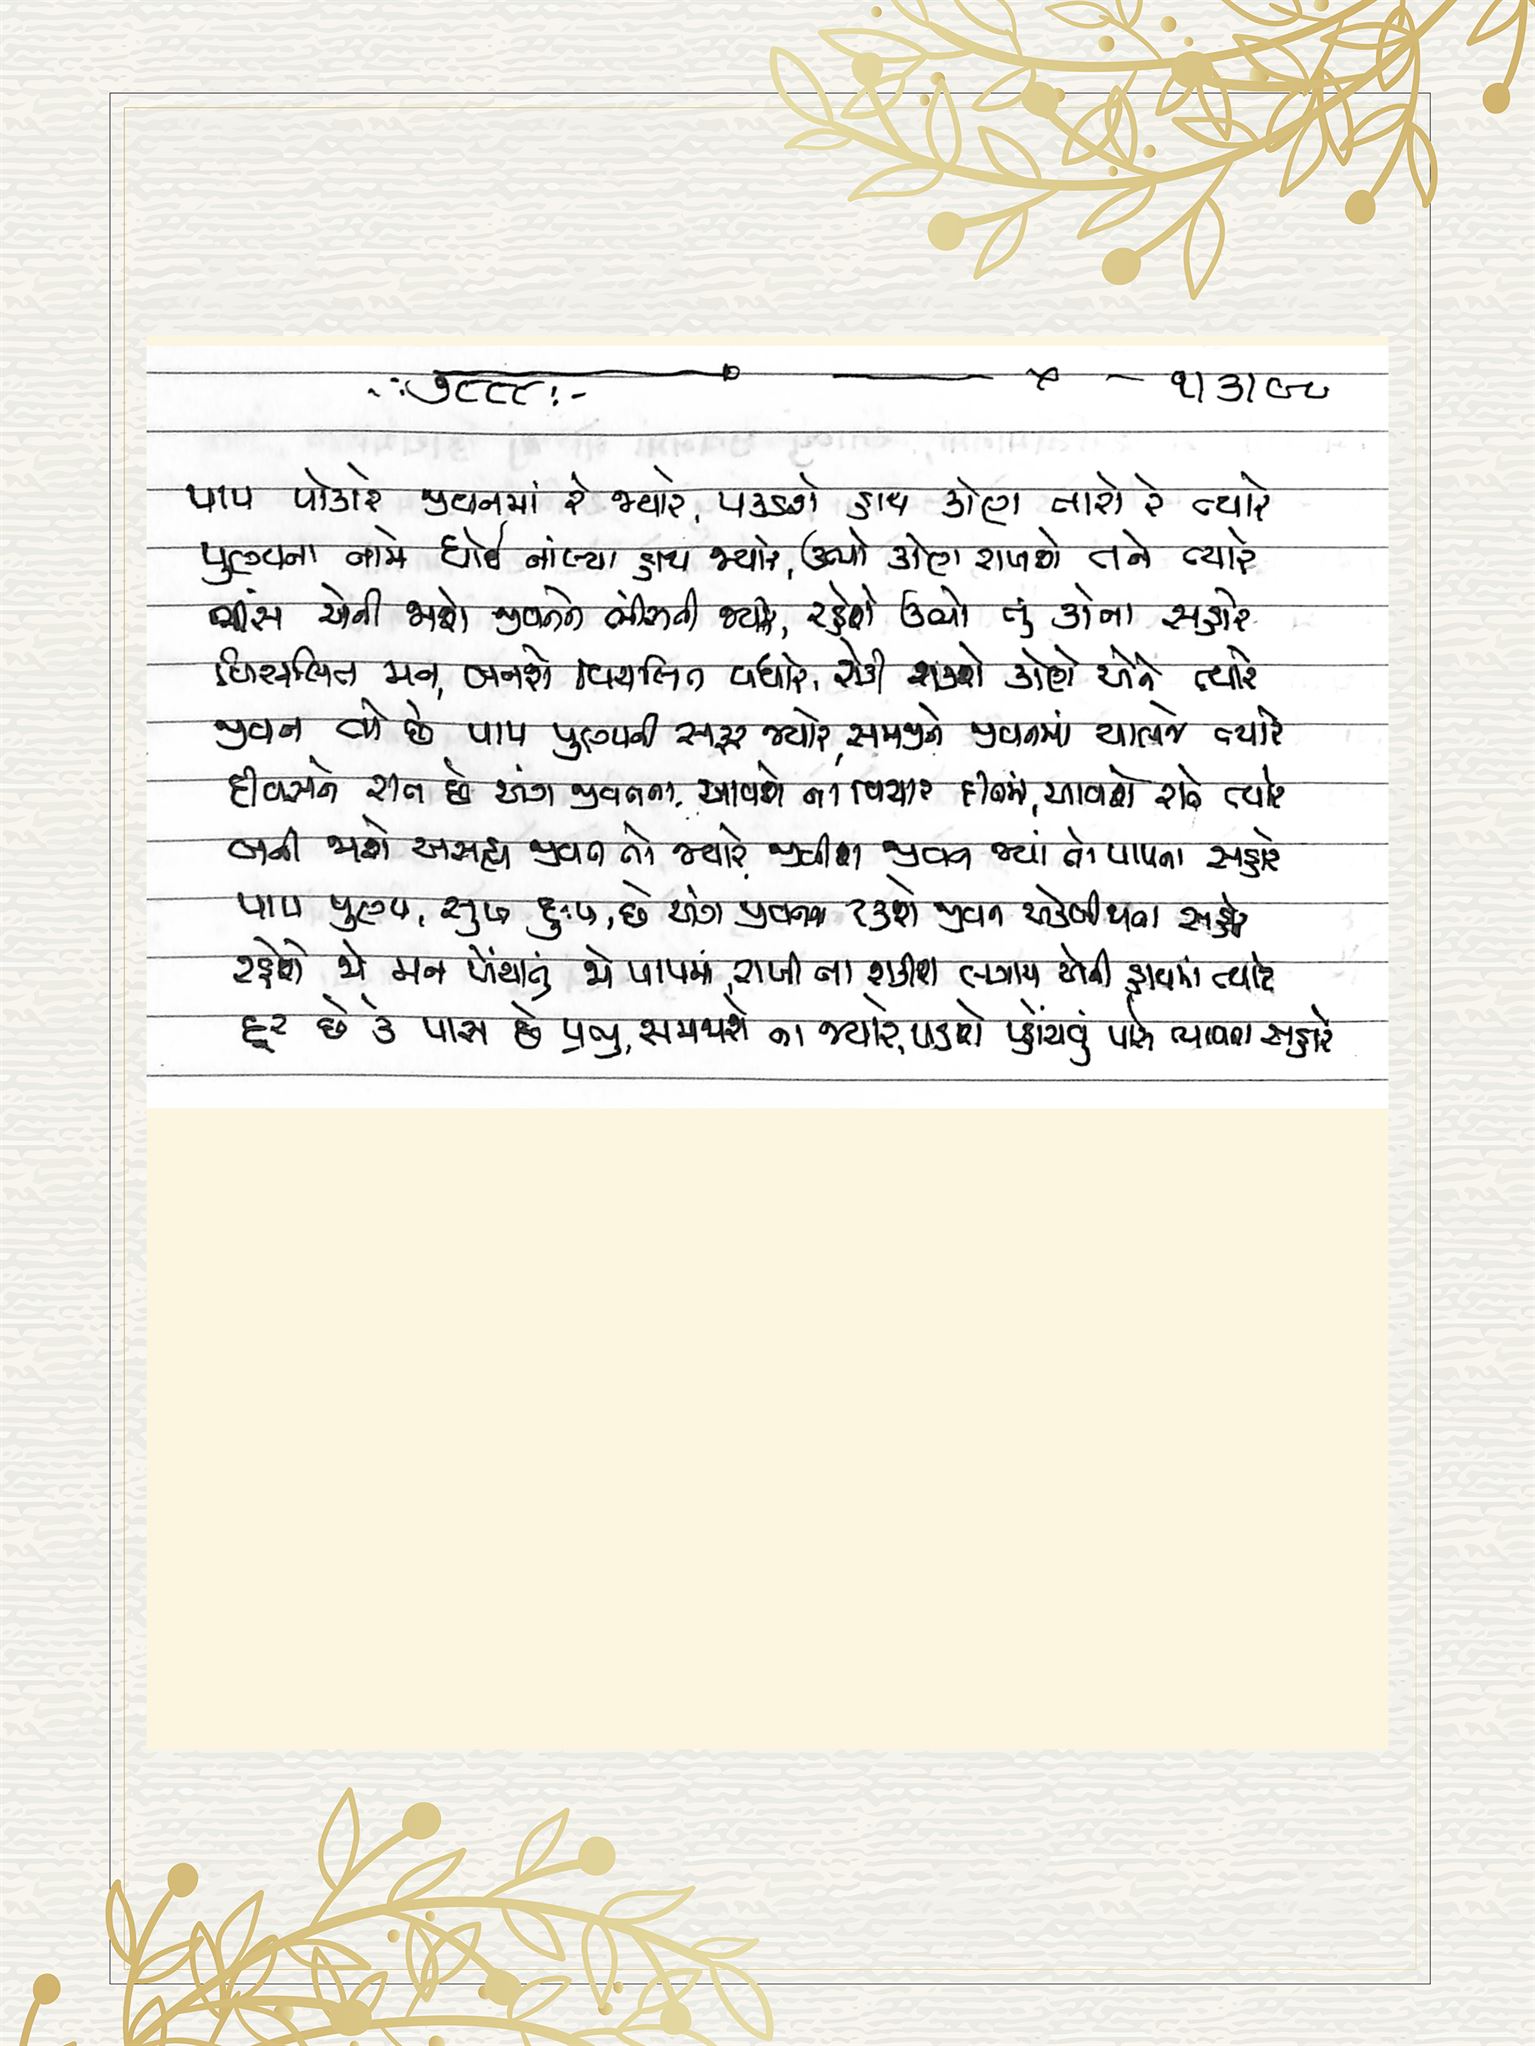 ૭૯૯૯ :- ૧/૩/૯૮
પાપ પોકારે જીવનમાં રે જ્યારે, પકડશે હાથ કોણ તારો રે ત્યારે
પુણ્યના નામે ધોઈ નાંખ્યા હાથ જ્યારે, ઊભો કોણ રાખશે તને ત્યારે
ભીંસ એની જાશે જીવનને ભીંજવી જ્યારે, રહેશે ઊભો તું કોના સહારે
વિચલિત મન, બનશે વિચલિત વધારે, રોકી શકશે કોણ એને ત્યારે
જીવન તો છે પાપ પુણ્યની સફર જ્યારે, સમજીને જીવનમાં ચાલજે ત્યારે
દીવસને રાત છે અંગ જીવનના, આવશે ના વિચાર દીનમાં, આવશે રાતે ત્યારે
બની જાશે અસહ્ય જીવન તો જ્યારે, જીવીશ જીવન જ્યાં તો પાપના સહારે
પાપ પુણ્ય, સુખ દુઃખ, છે અંગ જીવનના ટકશે જીવન એકબીજાના સહારે
રહેશે જો મન ખેંચાતું જો પાપમાં, રાખી ના શકીશ લગામ એની હાથમાં ત્યારે
દૂર છે કે પાસ છે પ્રભુ, સમજાશે ના જ્યારે, પડશે પહોંચવું પાસે ભાવના સહારે